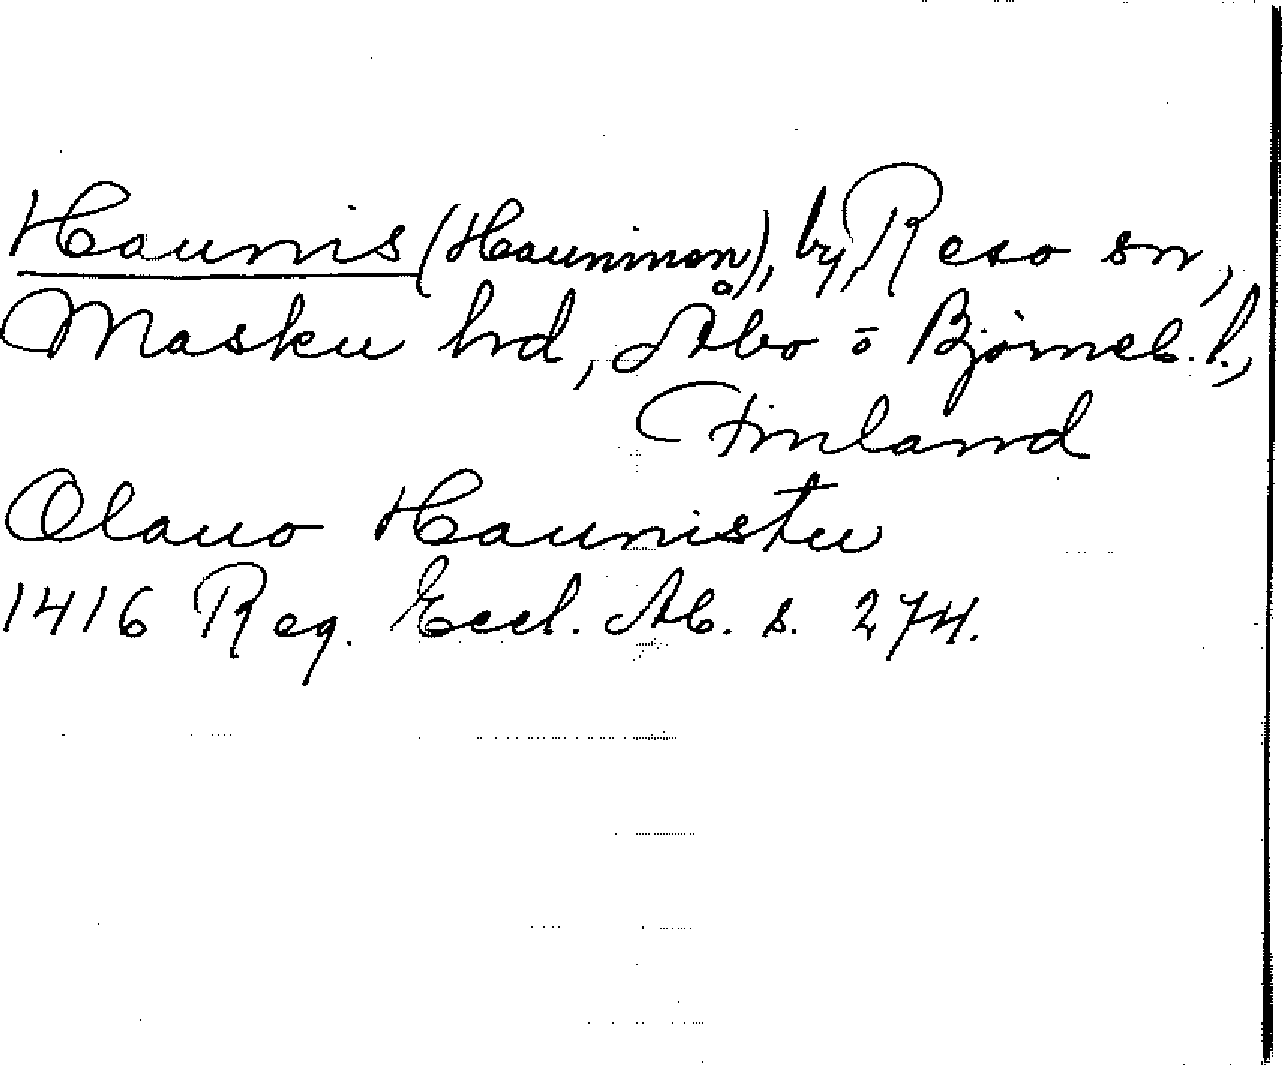 Haunis (Hauninen), by, Reso sn,
Masku hd, Åbo o Björneb. l.,
Finland
Olauo Haunistu
1416 Reg. Eccl. Ab. s. 274.